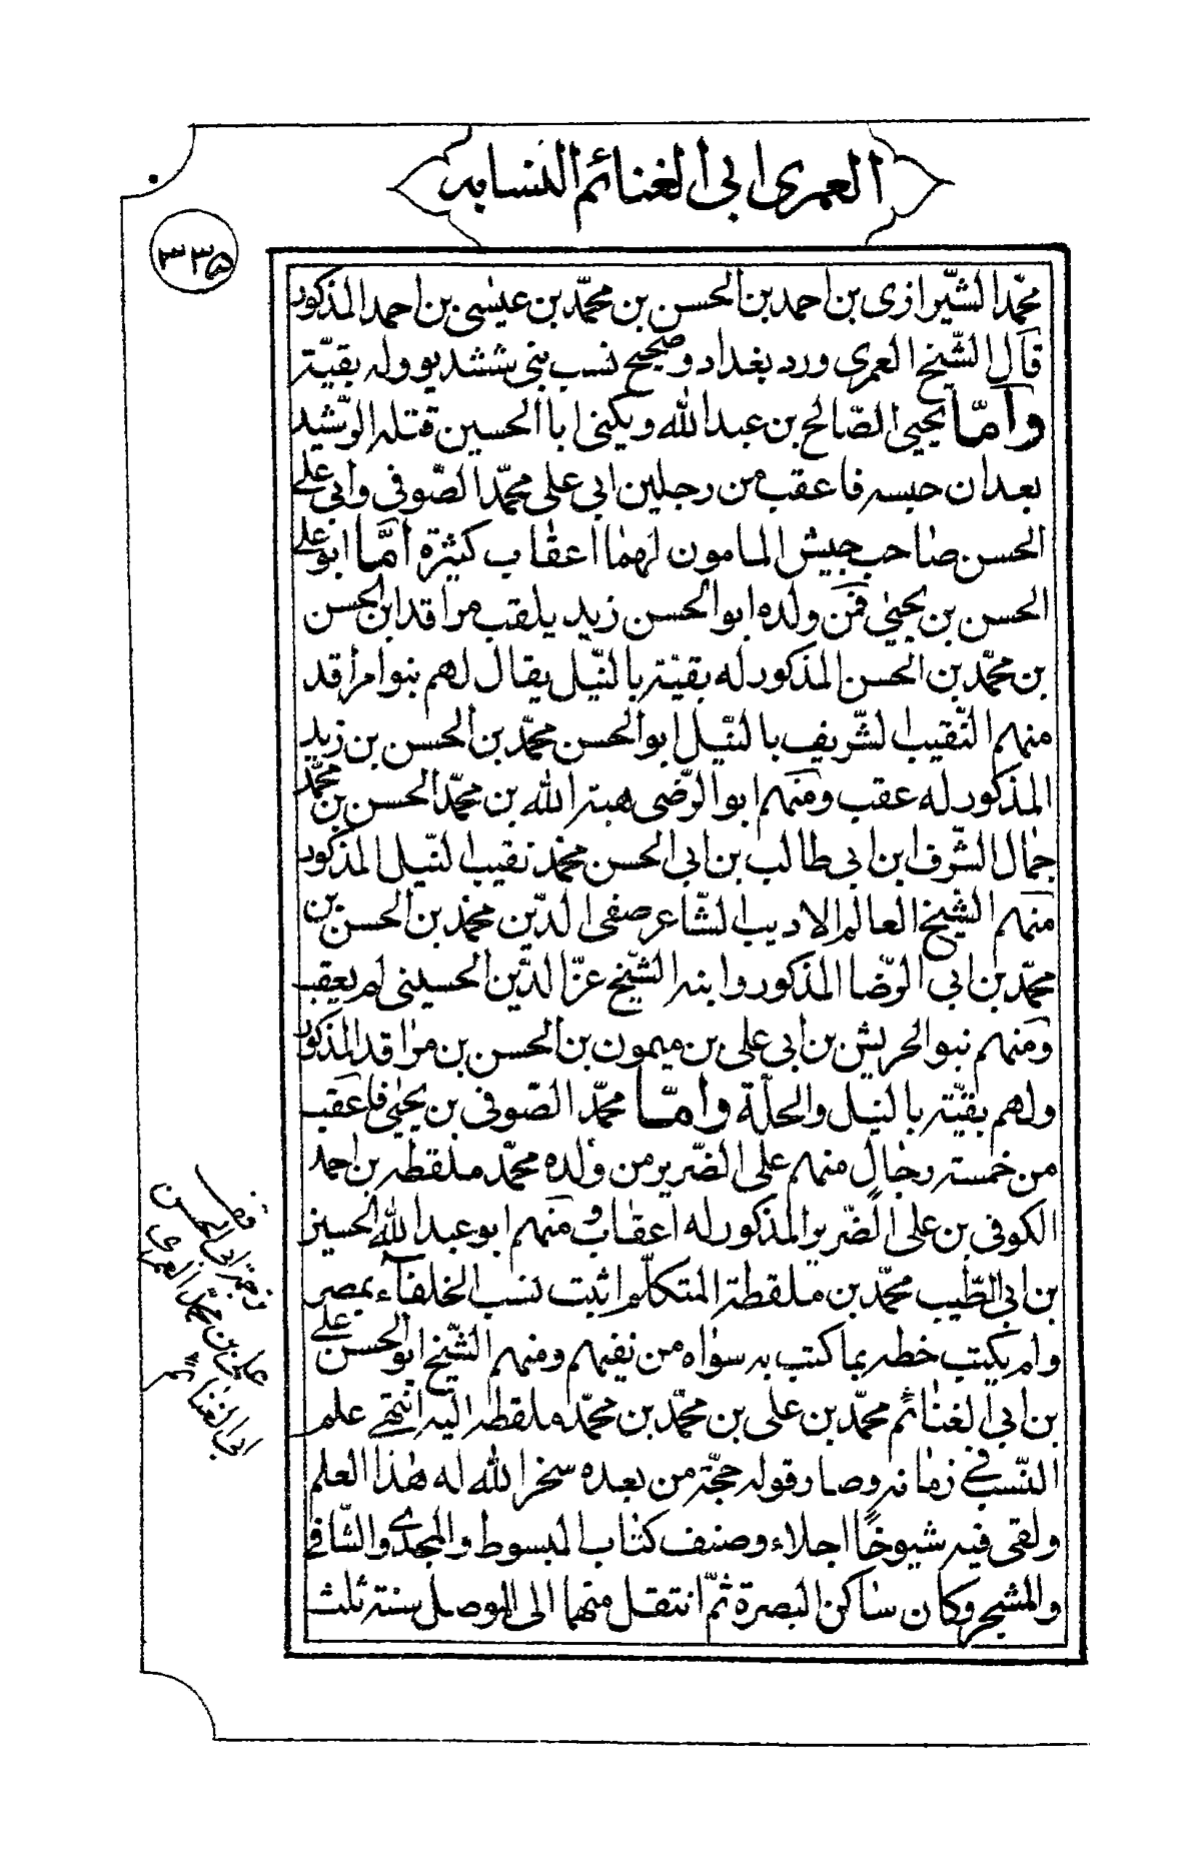 العمرى ابى الغنائم النسابه
٣٣٥
محمّد الشّيرازى بن احمد بن الحسن بن محمّد بن عيسى بن احمد المذكور
قال الشّيخ العمرى ورد بغداد وصحيح نسب بنى ششديو وله بقيّة
وامّا يحيى الصّالح بن عبد الله ويكنى ابا الحسين قتله الرّشيد
بعد ان حبسه فاعقب من رجلين ابى على محمّد الصّوفى وابى على
الحسن صاحب جيش المامون لهما اعقاب كثيرة امّا ابو على
الحسن بن يحيى فمن ولده ابو الحسن زيد يلقب مراقد ابن الحسن
بن محمّد بن الحسن المذكور له بقيّة بالنّيل يقال لهم بنوا مراقد
منهم النّقيب الشّريف بالنّيل ابو الحسن محمّد بن الحسن بن زيد
المذكور له عقب ومنهم ابو الرّضى هبة الله بن محمّد الحسن بن محمّد
جمال الشّرف ابن ابى طالب بن ابى الحسن محمّد نقيب النّيل المذكور
منهم الشّيخ العالم الاديب الشّاعر صفى الدّين محمّد بن الحسن بن
محمّد بن ابى الرّضا المذكور وابنه الشّيخ عزّ الدّين الحسينى لم يعقب
ومنهم بنو الحريش بن ابى على بن ميمون بن الحسن بن مراقد المذكور
ولهم بقيّة بالنيل والحلّة وامّا محمّد الصّوفى بن يحيى فاعقب
من خمسة رجال منهم على الضّرير من ولده محمّد ملقطه بن احمد
الكوفى بن على الضّرير المذكور له اعقاب ومنهم ابو عبد الله الحسين
بن ابى الطّيب محمّد بن ملقطة المتكلّم اثبت نسب الخلفآء بمصر
ولم يكتب خطه بما كتب به سواه من نفيهم ومنهم الشّيخ ابو الحسن على
بن ابى الغنائم محمّد بن على بن محمّد بن محمّد ملقطه اليه انتهى علم
النّسب فى زمانه وصار قوله حجّة من بعده سخر الله له هذا العلم
ولقى فيه شيوخًا اجلاء وصنف كتاب المبسوط والمجدى والشّافى
والمشجر وكان ساكن البصرة ثمّ انتقل منها الى الموصل سنة ثلث
ابى الحسن
على بن محمّد العمرى
ابى الغنائم